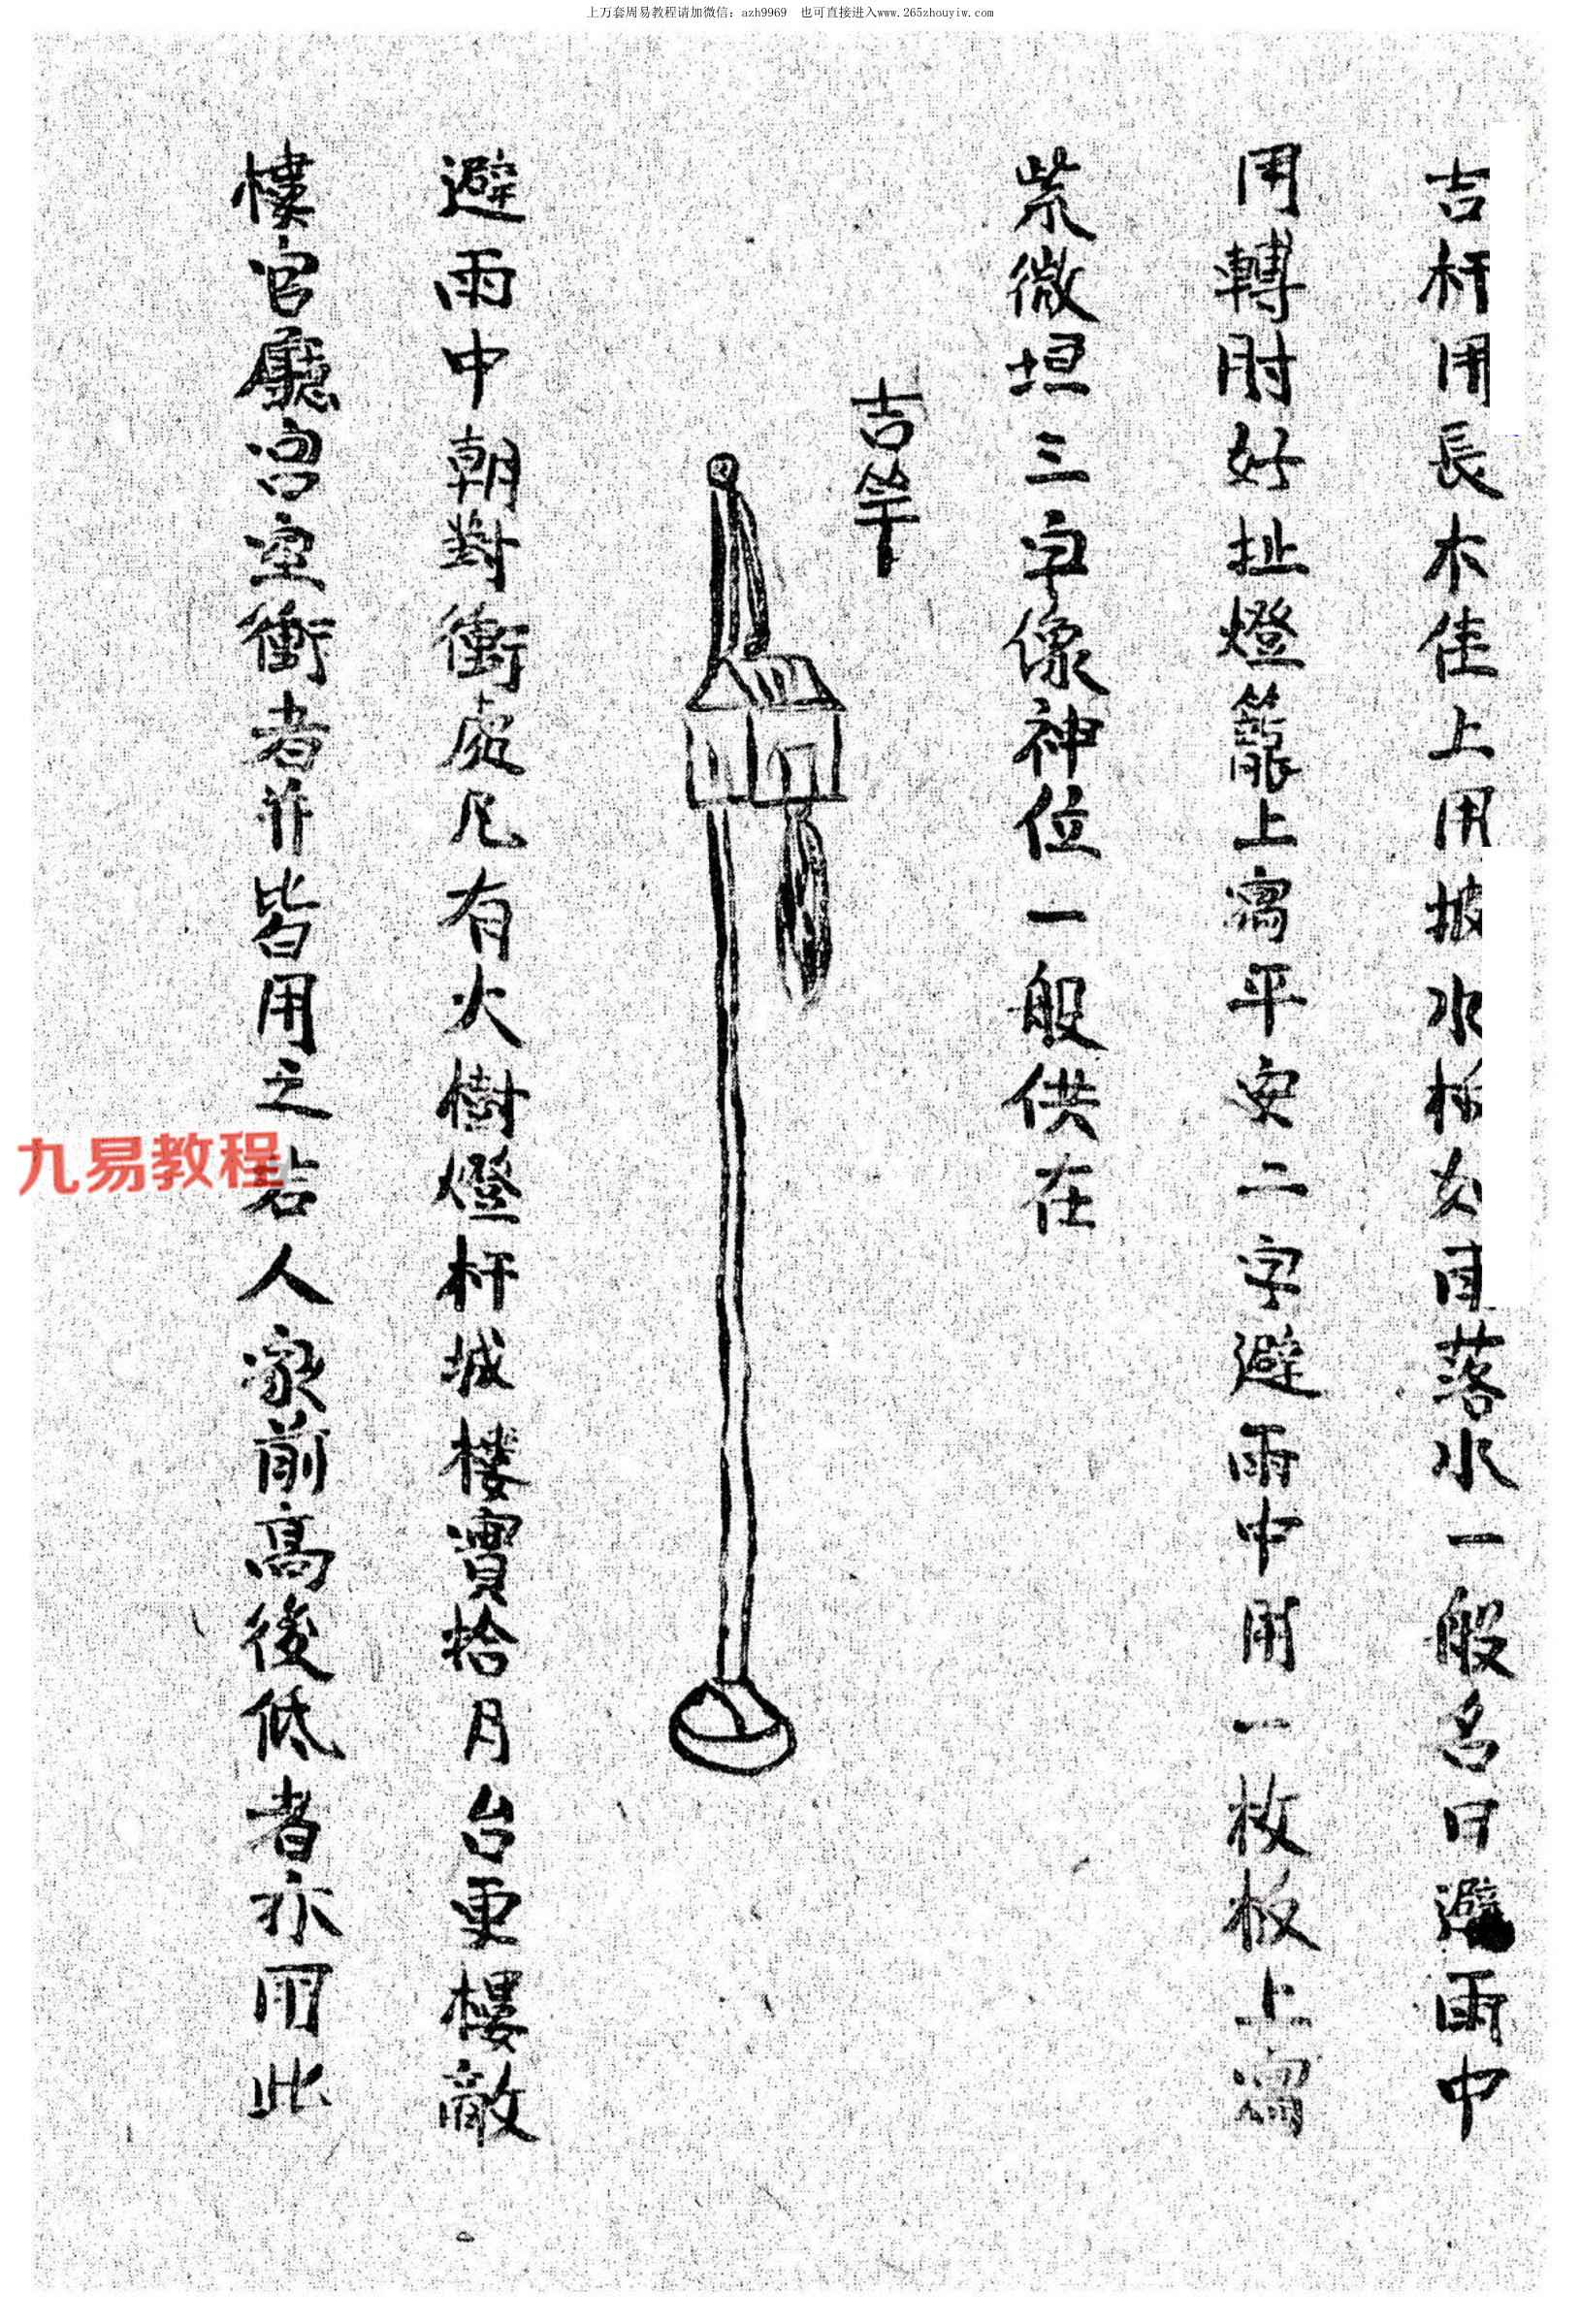 上万套周易教程请加微信：azh9969　也可直接进入www.265zhouyiw.com
吉杆用長木佳上用披水落水一般名曰避雨中
用轉肘好扯燈籠上寫平安二字避雨中用一枚板上寫
紫微垣三字像神位一般供在
吉竿
避雨中朝對衝處凡有火樹燈杆城樓寶拾月台更樓敵
樓官廳宫室衝者并皆用之若人家前高後低者亦用此
九易教程